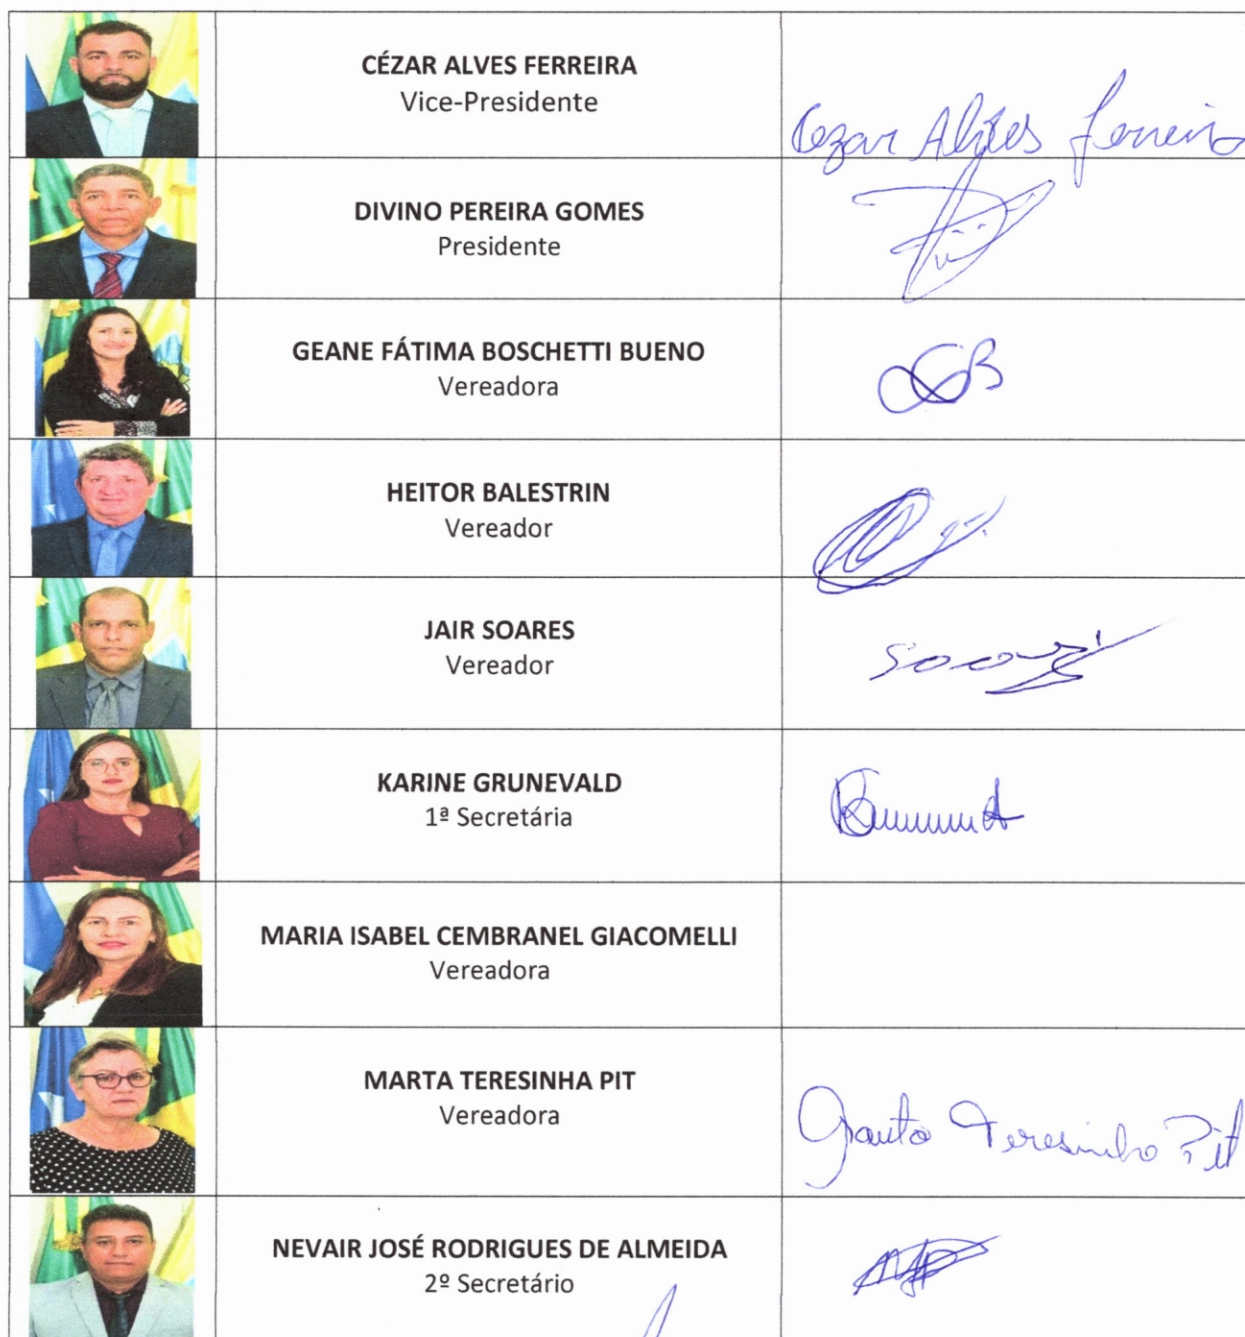 CÉZAR ALVES FERREIRA
Vice-Presidente
Cezar Alves Ferreira
DIVINO PEREIRA GOMES
Presidente
GEANE FÁTIMA BOSCHETTI BUENO
Vereadora
HEITOR BALESTRIN
Vereador
JAIR SOARES
Vereador
KARINE GRUNEVALD
1ª Secretária
MARIA ISABEL CEMBRANEL GIACOMELLI
Vereadora
MARTA TERESINHA PIT
Vereadora
Teresinha Pit
NEVAIR JOSÉ RODRIGUES DE ALMEIDA
2º Secretário